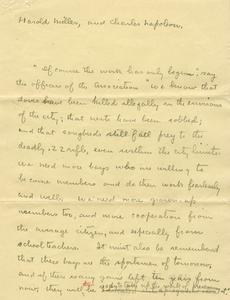 Harold Miller, and Charles Napoleon.
"Of course the work has only begun", say
the officers of the Association. "We know that
doves have been killed illegally in the environs
of the city; that nests have been robbed;
and that songbirds still fall prey to the
deadly .22 rifle, even within the city limits.
We need more boys who are willing to
become members and do their work fearlessly
and well. We need more grown-up
members too, and more cooperation from
the average citizen, and especially from
school teachers. It must also be remembered
that these boys are the sportsmen of tomorrow,
and if there is any game left ten years from
now, they will be